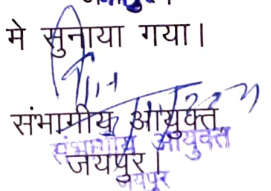 मे सुनाया गया।
संभागीय आयुक्त,
संभागीय आयुक्त
जयपुर।
जयपुर